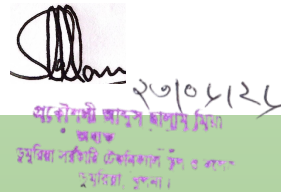 ২৩/০৮/২৮
প্রকৌশলী আব্দুস ছালাম মিয়া
অধ্যক্ষ
ডুমুরিয়া সরকারি টেকনিক্যাল স্কুল ও কলেজ
ডুমুরিয়া, খুলনা।